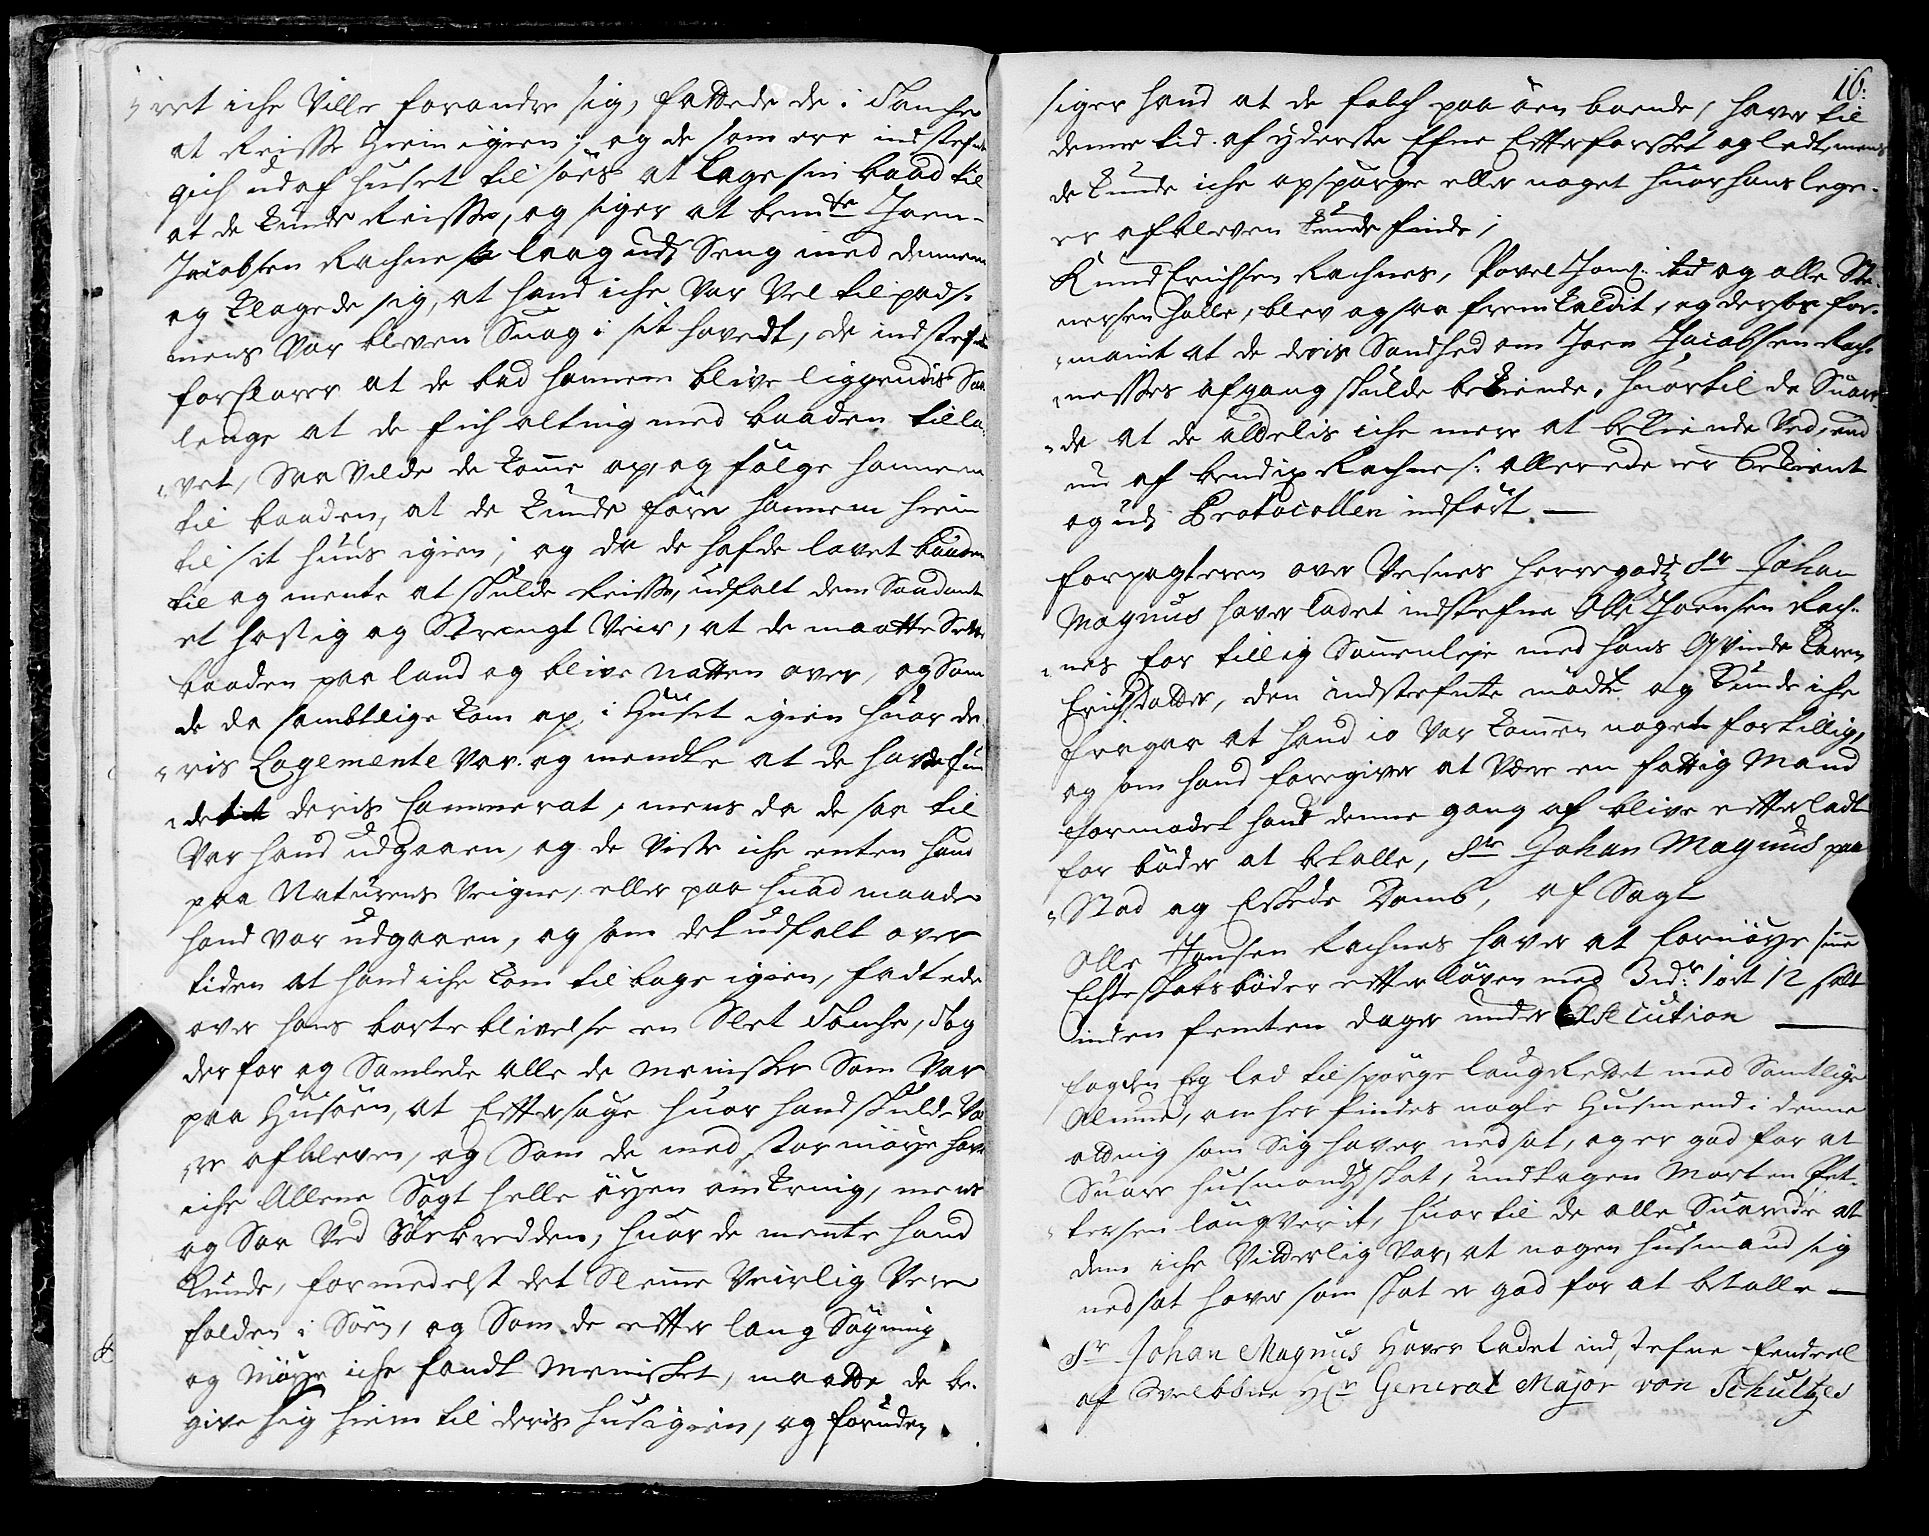 ret iche Ville forandre sig, fattede de i Tanche
at Reisse Hiem igien; og de som ere indstefnte
gich ud af huset til søes at lage sin baad til
at de kunde Reisse, og siger at bemte Joen
Jacobsen Rachnes laag udj Seng med dennem
og klagede sig, at hand iche var Vel tilpads.
mens var bleven Suag i sit hovedt, de indstefnte
forklarer at de bad hannem blive liggendis Saa
lenge at de fich alting med baaden tilla¬
vet, Saa Vilde de komme op, og følge hannem
til baaden, at de kunde føre hannem hiem
til sit huus igien; og da de hafde lavet baaden
til og mente at skulde Reisse, udfalt dem Saadant
et hastig og Strengt Veir, at de maatte Sette
baaden paa land og blive natten over, og Som
de da sambtlige kom op i Huset igien huor de¬
ris Logemente var. og mendte at de hafde fun
det deris Cammerat, mens da de saa til
Var hand udgaaen, og de Viste iche enten hand
paa Naturens Veigne, eller paa huad maade
hand var udgaaen, og som det udfalt over
tiden at hand iche kom tilbage igien, fadtede
over hans borteblivelse en Slet Tanche, Tog
derfor og Samlede alle de mennisker Som Var
paa Husøen, at Effersøge huor hand skulde Væ
re afbleven, og Som de med stor møye hafve
iche Allene Søgt helle øyen omkring, mens
og Saa Ved Søebredden, huor de mente hand
kunde, formedelst det Slemme Veirlig Vere
falden i Søen, og Som de effter lang Søgning
og Møye iche fandt Mennisket, maatte de be¬
give sig hiem til deris hus igien, og foruden
16:
siger hand at de folch paa øen boende, haver til
denne tid af yderste Efne Effterforsket og ledt, mens
de kunde iche opspørge eller noget huor hans lege¬
er afbleven kunde finde;
Knud Erichsen Rachnes, Povel Joens: ibid og olle Ste¬
nersen Halle, blev og saa fremkaldit, og dessen for¬
manit at de deris Sandhed om Joen Jacobsen Rach¬
nesses afgang skulde bekiende, huortil de Suare¬
de at de aldelis iche mere at bekiende Ved, end
nu af bendix Rachnes: allerede er bekient
og udj Protocollen indført. —
forpagteren over Vesnes herregodtz Sr Johan
Magnus haver ladet indstefne Olle Joensen Rach¬
nes for tillig Sammenleje med hans Qvinde Karen
Erichsdatter, den indstefnte mødte og kunde iche
fragaa at hand io Var kommen noget for tillig,
og som hand foregiver at Være en fattig Mand
formodet hand denne gang af blive effterladt
for bøder at betalle, Sr Johan Magnus paa
Stod og Eskede Domb, af Sagt
Olle Jonsen Rachnes haver at fornøye sine
Echteskabsbøder effter loven med 3 rdr 1 ort 12 s:
inden femten dager under Execution —
fogden Eeg lod tilspørge laugRettet med Samtlige
Almue, om her findes nogle Husmend i denne
otting som Sig haver nedsat, og er god for at
Suare husmandsskat, undtagen Morten Pet¬
tersen laugverit, huortil de alle Suarede at
dem iche Vitterlig Var, at nogen husmand sig
nedsat haver som skat er god for at betalle —
Sr Johan Magnus Haver ladet indstefne Eendeel
af Hr General Major von Schultzes